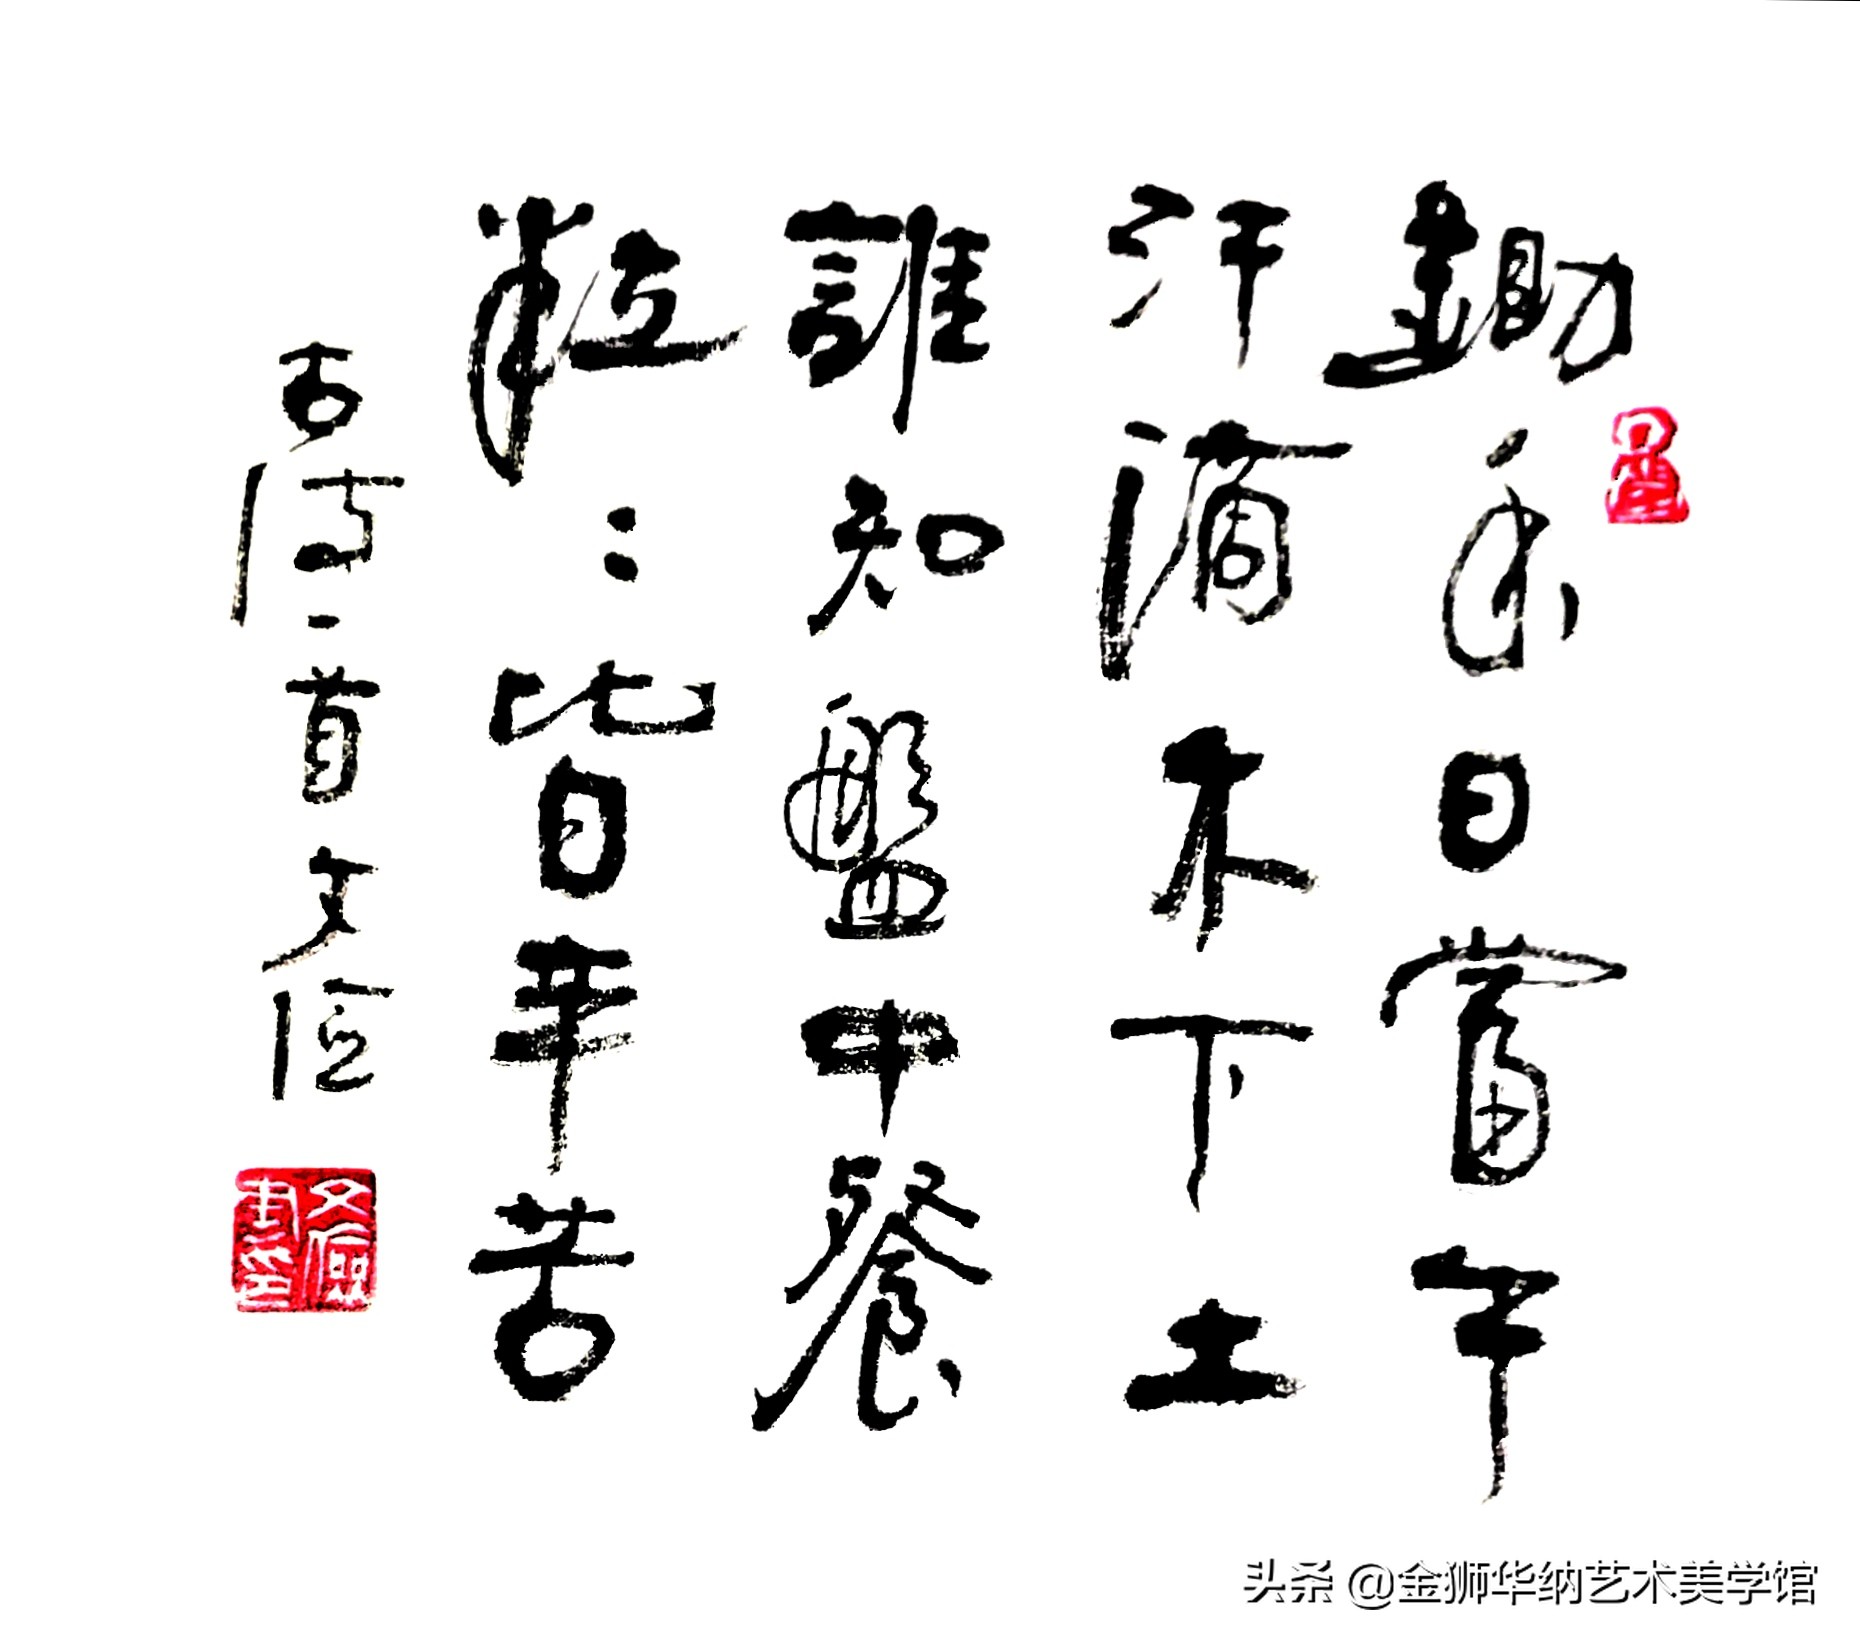 鋤禾日當午
汗滴禾下土
誰知盤中餐
粒〻皆辛苦
古诗一首文俭
文儉書印
头条 @金狮华纳艺术美学馆